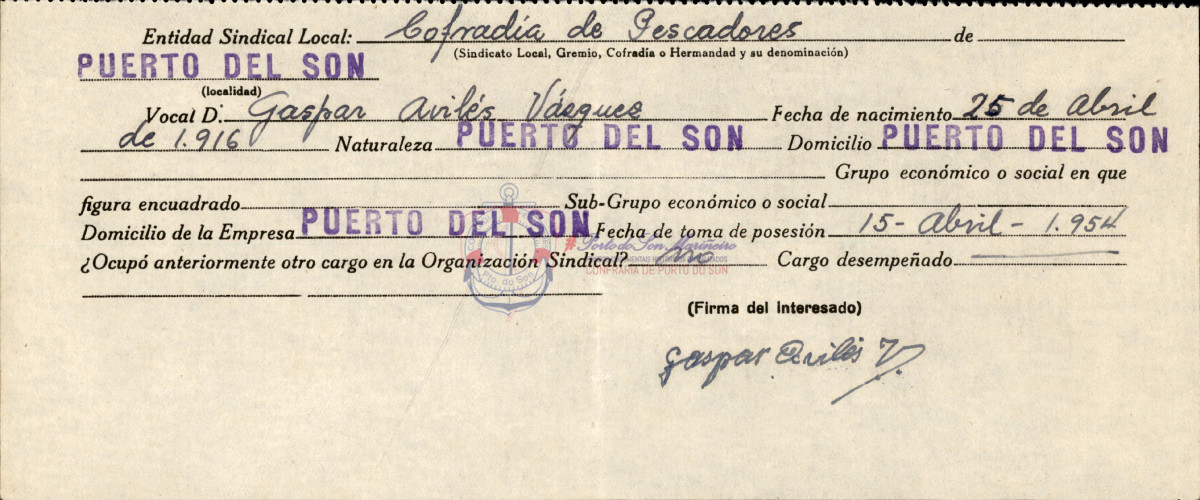 Entidad Sindical Local: Cofradía de Pescadores de
(Sindicato Local, Gremio, Cofradía o Hermandad y su denominación)
PUERTO DEL SON
(localidad)
Vocal D. Gaspar Avilés Vázquez Fecha de nacimiento 25 de Abril
de 1.916 Naturaleza PUERTO DEL SON Domicilio PUERTO DEL SON
Grupo económico o social en que
figura encuadrado Sub-Grupo económico o social
Domicilio de la Empresa PUERTO DEL SON Fecha de toma de posesión 15 - Abril - 1.954
#PortodoSonMariñeiro
¿Ocupó anteriormente otro cargo en la Organización Sindical? no Cargo desempeñado
CONFRARÍA DE PORTO DO SON
Pto. do Son
(Firma del interesado)
Gaspar Avilés V.